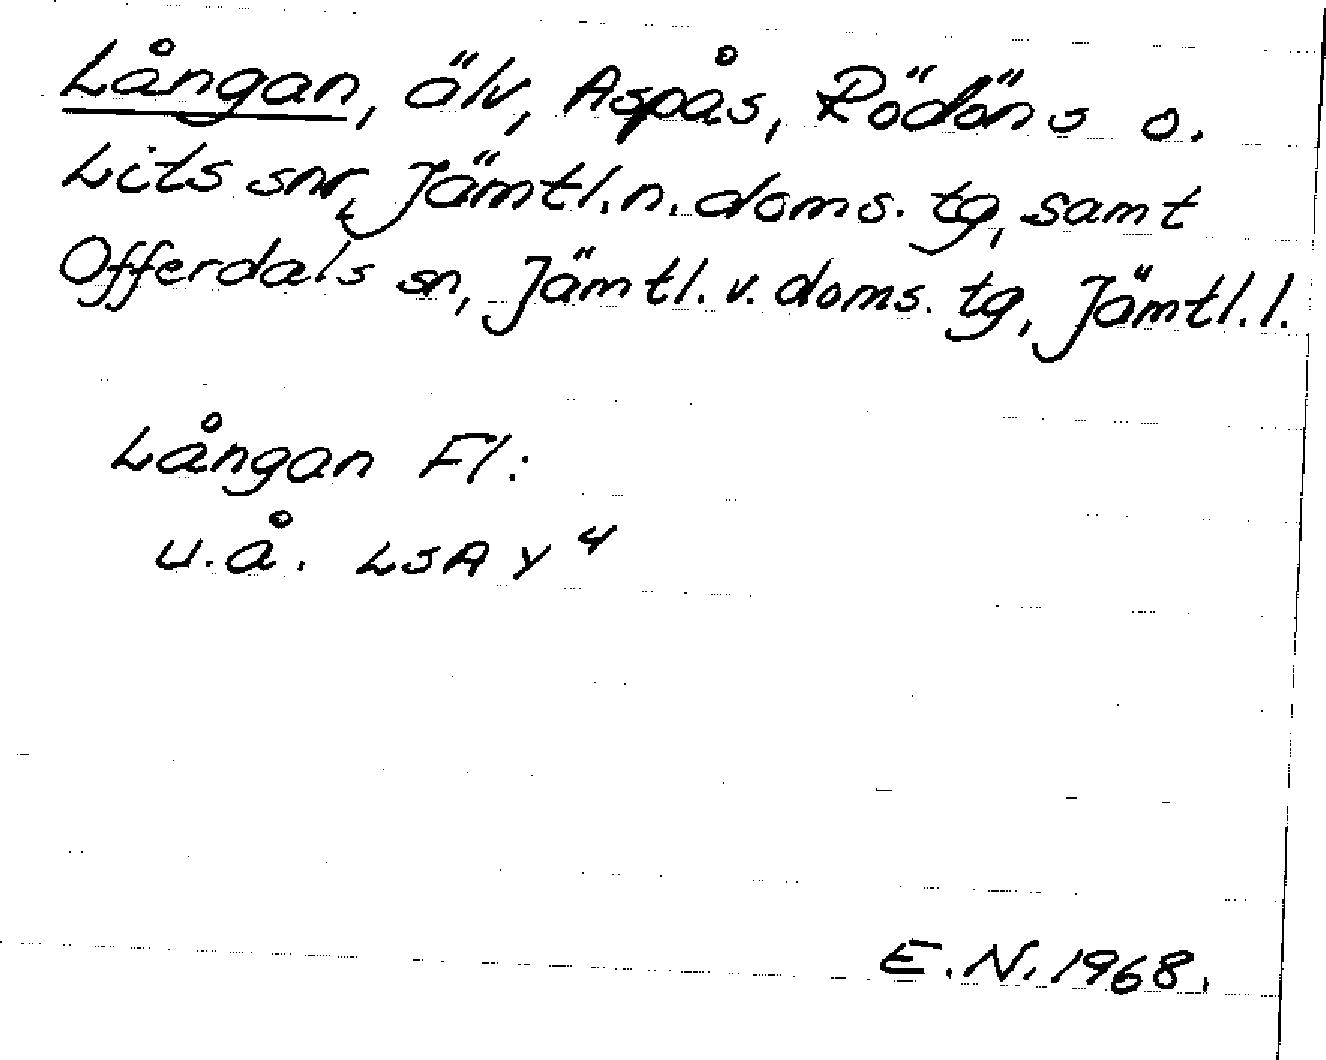 Långan, älv, Aspås, Rödöns o.
Lits snr, Jämtl. n. doms. tg, samt
Offerdals sn, Jämtl. v. doms. tg, Jämtl. l.
Långan Fl.:
u. å. LSA Y 4
E. N. 1968.